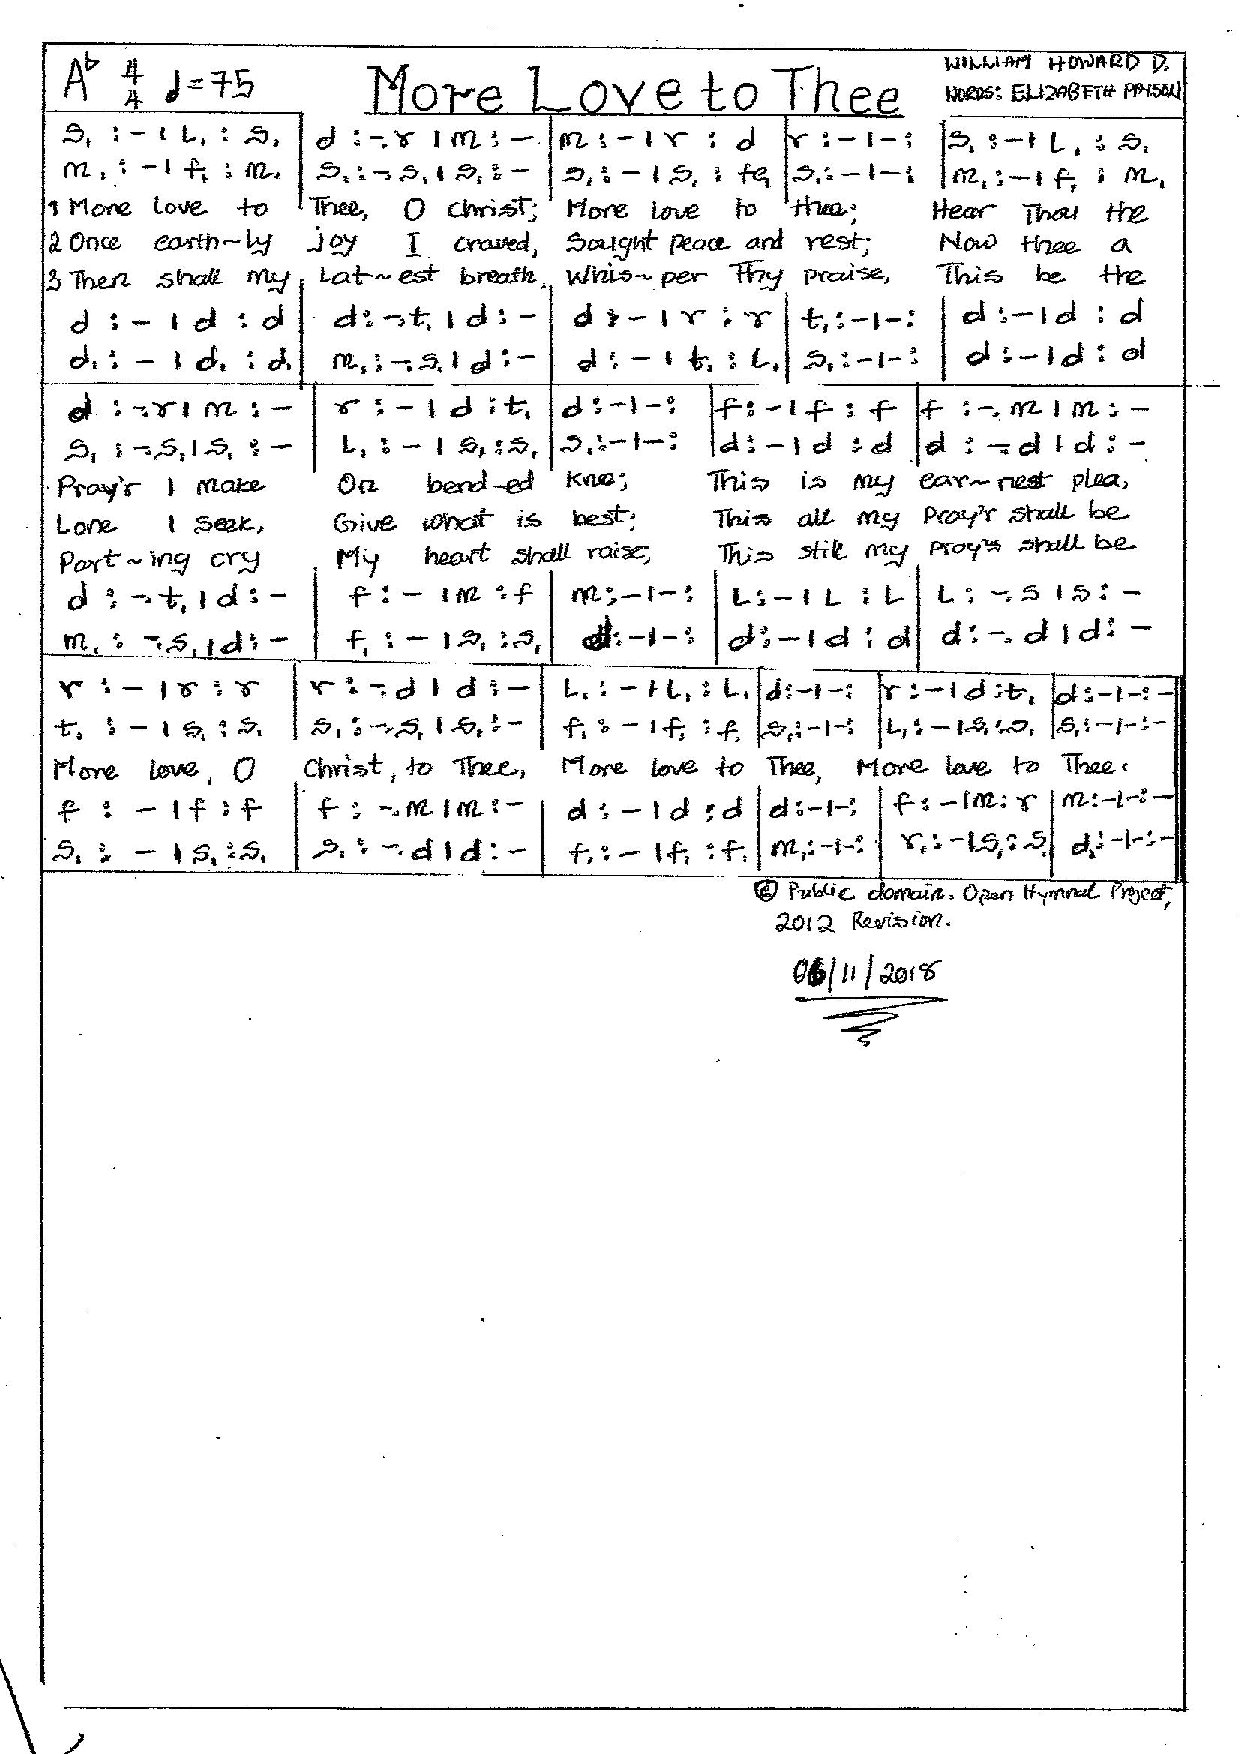 A♭ 4/4 ♩=75 More Love to Thee WILLIAM HOWARD D.
WORDS: ELIZABETH
s, :- | l, : s, | d :-.r | m :- | m :- | r : d | r :- | - : | s, :- | l, : s,
m, :- | f, : m, | s, :-.s, | s, :- | s, :- | s, : fe, | s, :- | - : | m, :- | f, : m,
1 More love to Thee, O Christ; More love to thee; Hear Thou the
2 Once earth~ly joy I craved, Sought peace and rest; Now thee a
3 Then shall my Lat~est breath, Whis~per Thy praise, This be the
d :- | d : d | d :-.t, | d :- | d :- | r : r | t, :- | - : | d :- | d : d
d, :- | d, : d, | m, :-.s, | d :- | d :- | t, : l, | s, :- | - : | d :- | d : d
d :-.r | m :- | r :- | d : t, | d :- | - : | f :- | f : f | f :-.m | m :-
s, :-.s, | s, :- | l, :- | s, : s, | s, :- | - : | d :- | d : d | d :-.d | d :-
Pray'r I make On bend-ed knee; This is my ear~nest plea,
Lone I seek, Give what is best; This all my Pray'r shall be
Part~ing cry My heart shall raise, This still my Pray'r shall be
d :-.t, | d :- | f :- | m : f | m :- | - : | l :- | l : l | l :-.s | s :-
m, :-.s, | d :- | f, :- | s, : s, | d :- | - : | d :- | d : d | d :-.d | d :-
r :- | r : r | r :-.d | d :- | l, :- | l, : l, | d :- | - : | r :- | d : t, | d :- | - : -
t, :- | s, : s, | s, :-.s, | s, :- | f, :- | f, : f, | s, :- | - : | l, :- | s, : s, | s, :- | - : -
More love, O Christ, to Thee, More love to Thee, More love to Thee.
f :- | f : f | f :-.m | m :- | d :- | d : d | d :- | - : | f :- | m : r | m :- | - : -
s, :- | s, : s, | s, :-.d | d :- | f, :- | f, : f, | m, :- | - : | r, :- | s, : s, | d, :- | - : -
© Public domain. Open Hymnal Project,
2012 Revision.
06/11/2018